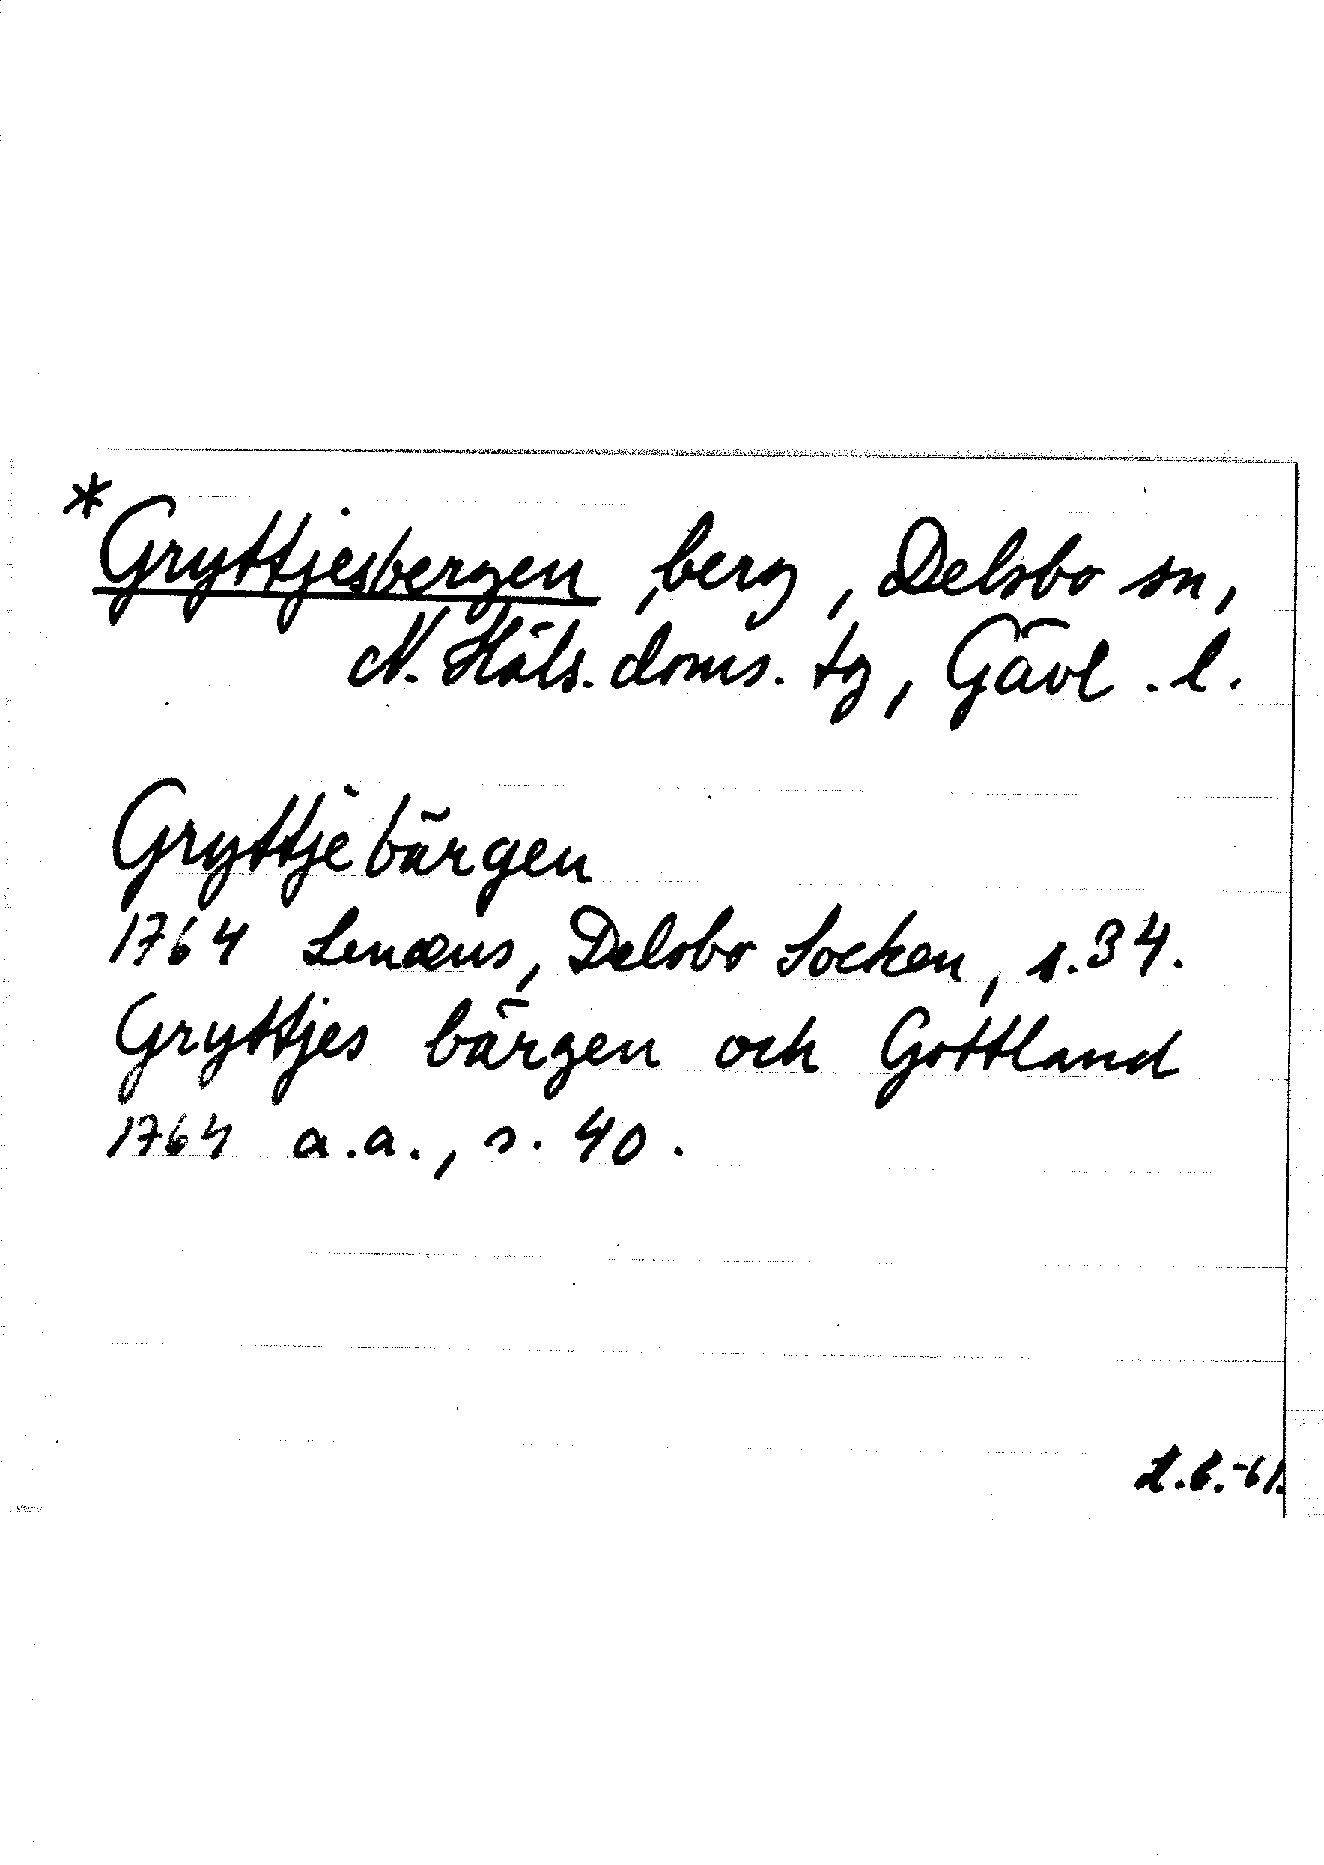 *Gryttjesbergen, berg, Delsbo sn,
N. Häls. doms. tg, Gävl. l.
Gryttjè bärgen
1764 Lenæus, Delsbo Socken, s. 34.
Gryttjes bärgen och Gottland
1764 a.a., s. 40.
L.B.-61.